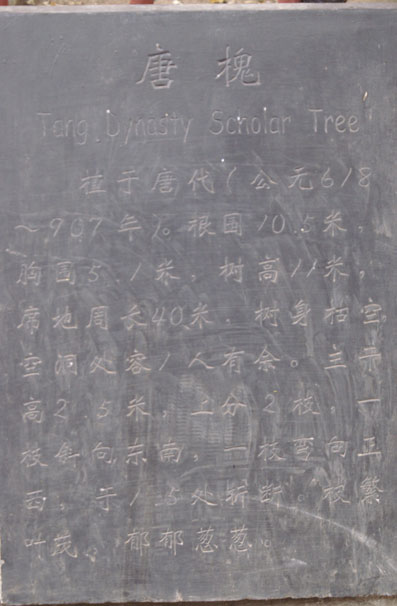 唐槐
Tang Dynasty Scholar Tree
植于唐代(公元618
～907年)。根围10.5米，
胸围5.1米，树高11米，
席地周长40米．树身枯空。
空洞处容1人有余。主干
高2.5米，上分2枝，一
枝斜向东南，一枝弯向正
西，于1.5处折断。枝繁
叶茂、郁郁葱葱。